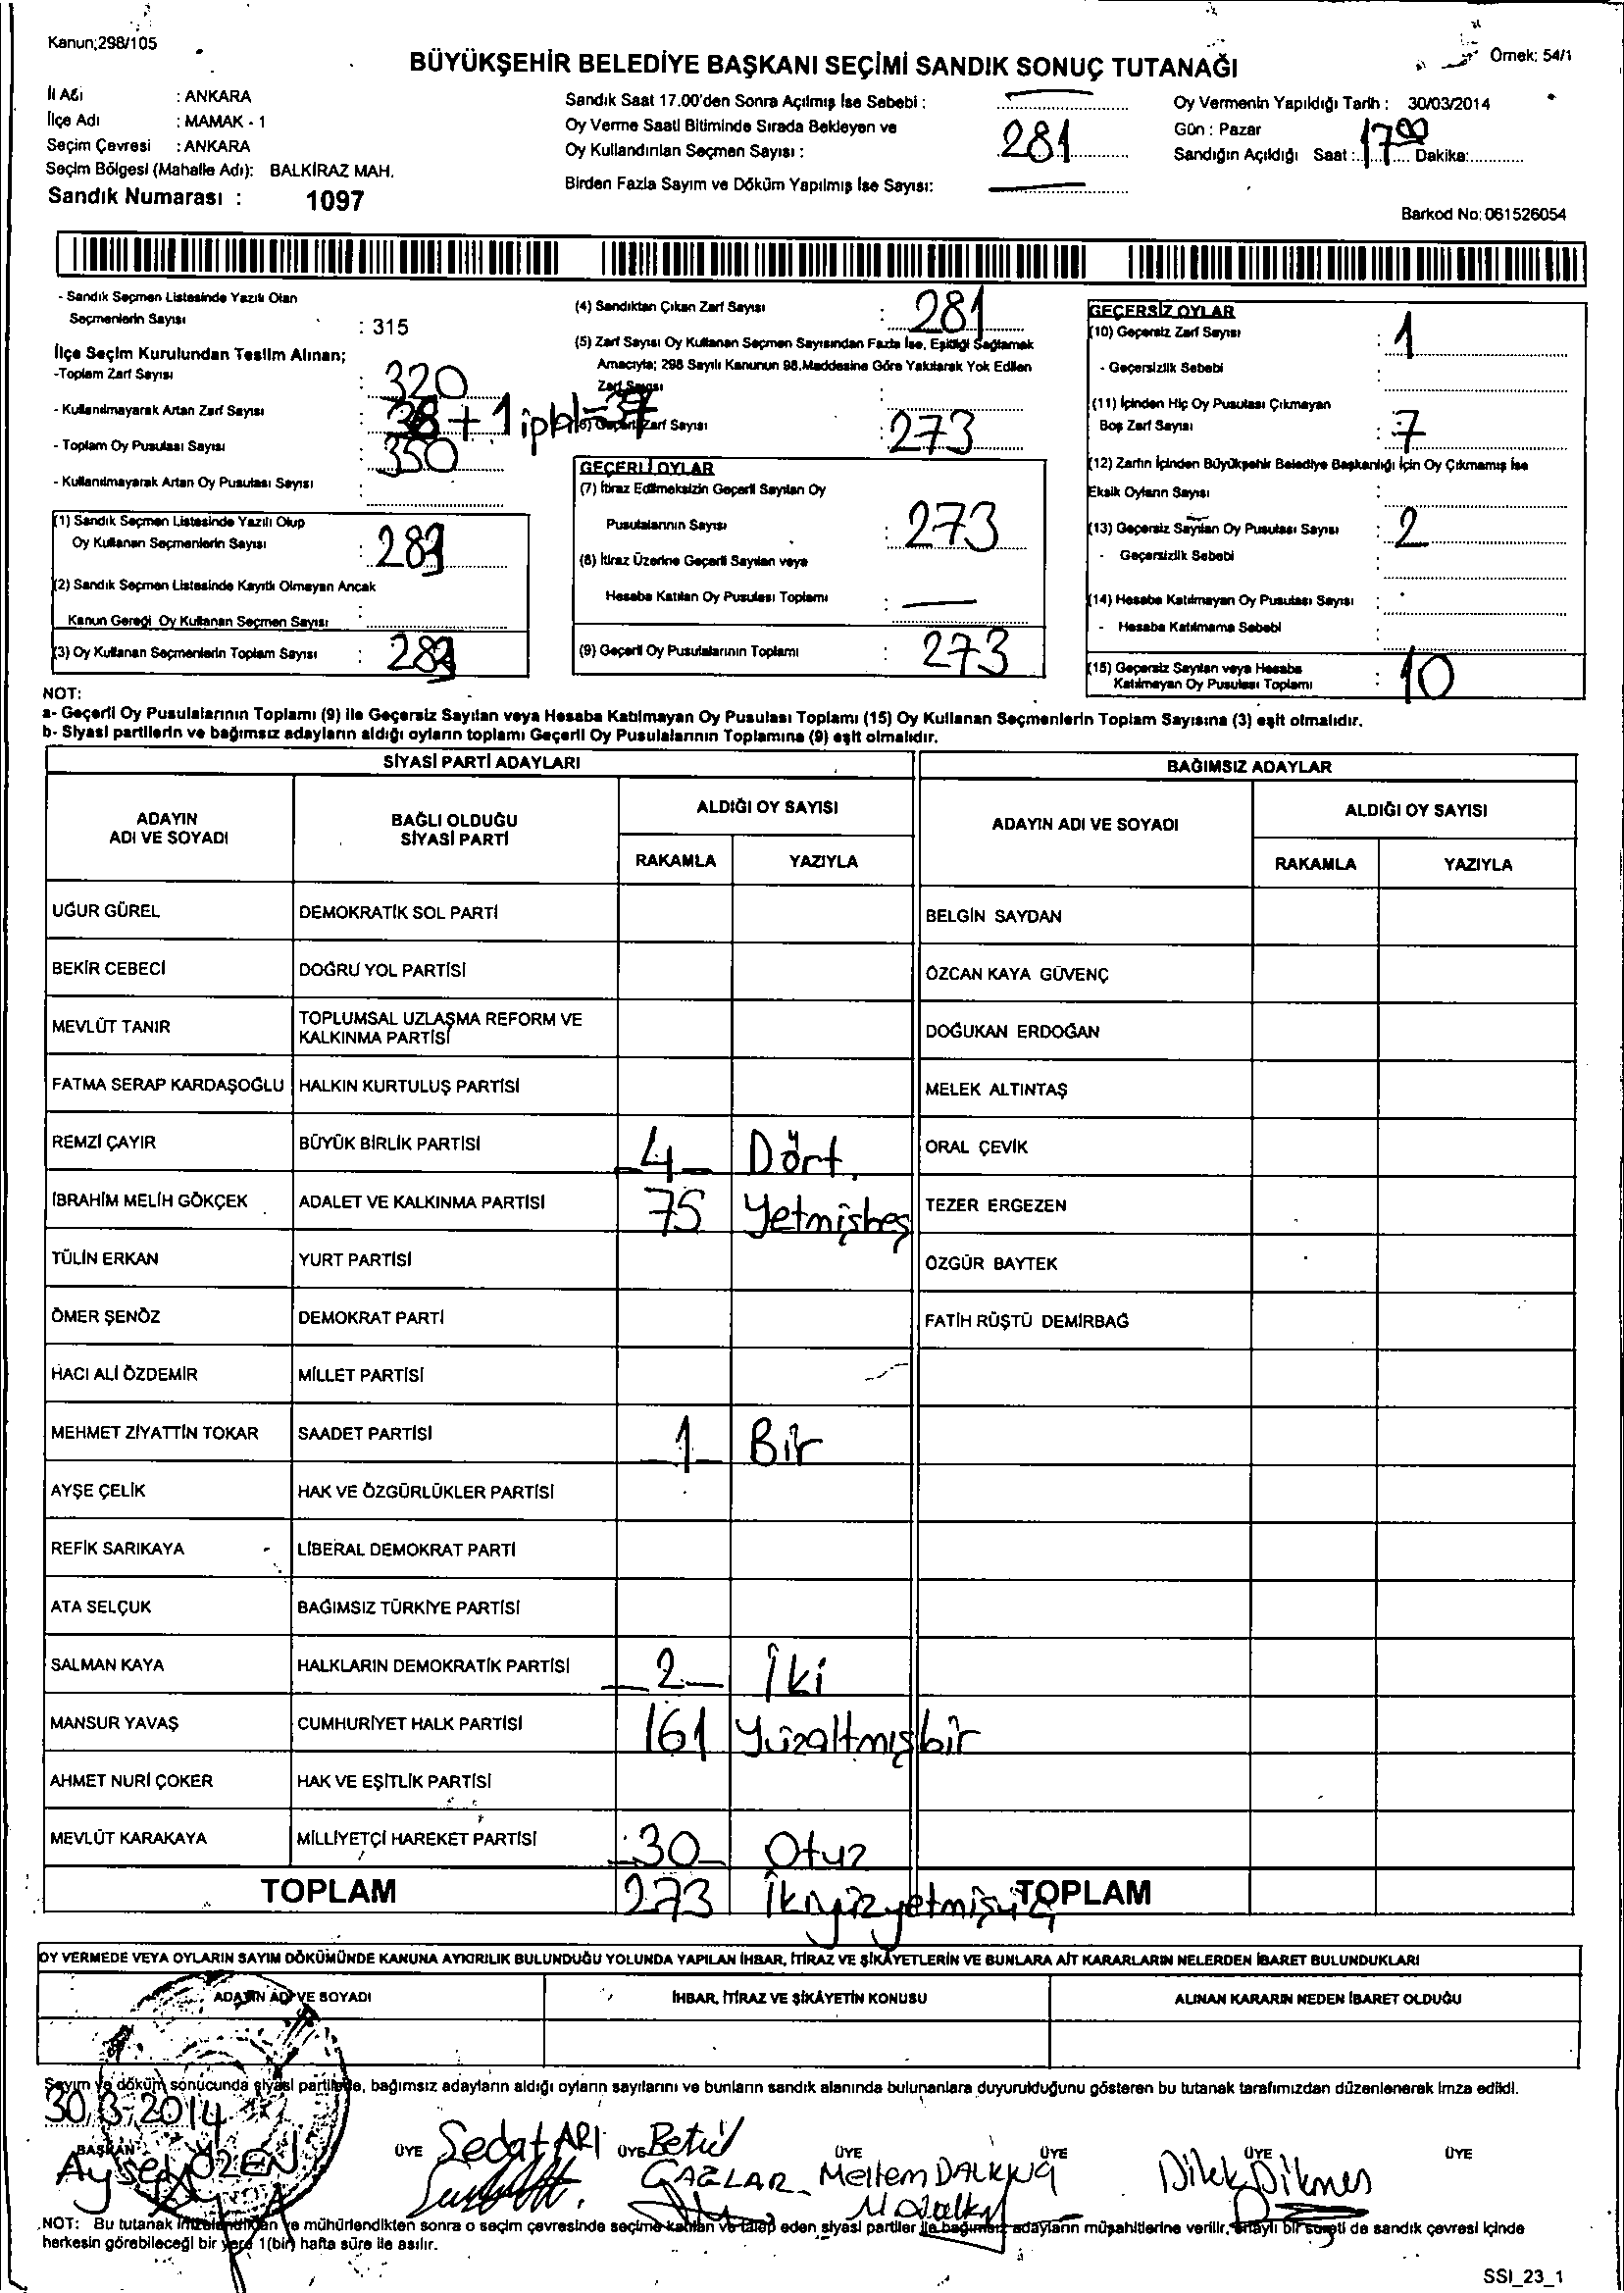 Kanun;298/105
BÜYÜKŞEHİR BELEDİYE BAŞKANI SEÇİMİ SANDIK SONUÇ TUTANAĞI
Örnek: 54/1
İl Adı : ANKARA
İlçe Adı : MAMAK - 1
Seçim Çevresi : ANKARA
Seçim Bölgesi (Mahalle Adı): BALKİRAZ MAH.
Sandık Numarası : 1097
Sandık Saat 17.00'den Sonra Açılmış İse Sebebi :
Oy Verme Saati Bitiminde Sırada Bekleyen ve
Oy Kullandırılan Seçmen Sayısı : 281
Birden Fazla Sayım ve Döküm Yapılmış İse Sayısı:
Oy Vermenin Yapıldığı Tarih : 30/03/2014
Gün : Pazar
Sandığın Açıldığı Saat : 17 00 Dakika:
Barkod No: 061526054
- Sandık Seçmen Listesinde Yazılı Olan
Seçmenlerin Sayısı : 315
İlçe Seçim Kurulundan Teslim Alınan;
-Toplam Zarf Sayısı : 320
- Kullanılmayarak Artan Zarf Sayısı : 38 + 1 ipbl = 37
- Toplam Oy Pusulası Sayısı : 350
- Kullanılmayarak Artan Oy Pusulası Sayısı :
(1) Sandık Seçmen Listesinde Yazılı Olup
Oy Kullanan Seçmenlerin Sayısı : 283
(2) Sandık Seçmen Listesinde Kayıtlı Olmayan Ancak
Kanun Gereği Oy Kullanan Seçmen Sayısı :
(3) Oy Kullanan Seçmenlerin Toplam Sayısı : 283
(4) Sandıktan Çıkan Zarf Sayısı : 281
(5) Zarf Sayısı Oy Kullanan Seçmen Sayısından Fazla İse, Eşitliği Sağlamak
Amacıyla; 298 Sayılı Kanunun 98.Maddesine Göre Yakılarak Yok Edilen
Zarf Sayısı :
(6) Geçerli Zarf Sayısı : 273
GEÇERLİ OYLAR
(7) İtiraz Edilmeksizin Geçerli Sayılan Oy
Pusulalarının Sayısı : 273
(8) İtiraz Üzerine Geçerli Sayılan veya
Hesaba Katılan Oy Pusulası Toplamı : —
(9) Geçerli Oy Pusulalarının Toplamı : 273
GEÇERSİZ OYLAR
(10) Geçersiz Zarf Sayısı : 1
- Geçersizlik Sebebi :
(11) İçinden Hiç Oy Pusulası Çıkmayan
Boş Zarf Sayısı : 7
(12) Zarfın İçinden Büyükşehir Belediye Başkanlığı İçin Oy Çıkmamış İse
Eksik Oyların Sayısı :
(13) Geçersiz Sayılan Oy Pusulası Sayısı : 2
- Geçersizlik Sebebi :
(14) Hesaba Katılmayan Oy Pusulası Sayısı :
- Hesaba Katılmama Sebebi :
(15) Geçersiz Sayılan veya Hesaba
Katılmayan Oy Pusulası Toplamı : 10
NOT:
a- Geçerli Oy Pusulalarının Toplamı (9) ile Geçersiz Sayılan veya Hesaba Katılmayan Oy Pusulası Toplamı (15) Oy Kullanan Seçmenlerin Toplam Sayısına (3) eşit olmalıdır.
b- Siyasi partilerin ve bağımsız adayların aldığı oyların toplamı Geçerli Oy Pusulalarının Toplamına (9) eşit olmalıdır.
SİYASİ PARTİ ADAYLARI
BAĞIMSIZ ADAYLAR
ADAYIN ADI VE SOYADI
BAĞLI OLDUĞU SİYASİ PARTİ
ALDIĞI OY SAYISI
RAKAMLA YAZIYLA
ADAYIN ADI VE SOYADI
ALDIĞI OY SAYISI
RAKAMLA YAZIYLA
UĞUR GÜREL DEMOKRATİK SOL PARTİ BELGİN SAYDAN
BEKİR CEBECİ DOĞRU YOL PARTİSİ ÖZCAN KAYA GÜVENÇ
MEVLÜT TANIR TOPLUMSAL UZLAŞMA REFORM VE KALKINMA PARTİSİ DOĞUKAN ERDOĞAN
FATMA SERAP KARDAŞOĞLU HALKIN KURTULUŞ PARTİSİ MELEK ALTINTAŞ
REMZİ ÇAYIR BÜYÜK BİRLİK PARTİSİ -4- Dört. ORAL ÇEVİK
İBRAHİM MELİH GÖKÇEK ADALET VE KALKINMA PARTİSİ 75 Yetmişbeş TEZER ERGEZEN
TÜLİN ERKAN YURT PARTİSİ ÖZGÜR BAYTEK
ÖMER ŞENÖZ DEMOKRAT PARTİ FATİH RÜŞTÜ DEMİRBAĞ
HACI ALİ ÖZDEMİR MİLLET PARTİSİ
MEHMET ZİYATTİN TOKAR SAADET PARTİSİ -1- Bir
AYŞE ÇELİK HAK VE ÖZGÜRLÜKLER PARTİSİ
REFİK SARIKAYA LİBERAL DEMOKRAT PARTİ
ATA SELÇUK BAĞIMSIZ TÜRKİYE PARTİSİ
SALMAN KAYA HALKLARIN DEMOKRATİK PARTİSİ -2- İki
MANSUR YAVAŞ CUMHURİYET HALK PARTİSİ 161 Yüzaltmışbir
AHMET NURİ ÇOKER HAK VE EŞİTLİK PARTİSİ
MEVLÜT KARAKAYA MİLLİYETÇİ HAREKET PARTİSİ -30- Otuz
TOPLAM 273 İkiyüzyetmişüç TOPLAM
OY VERMEDE VEYA OYLARIN SAYIM DÖKÜMÜNDE KANUNA AYKIRILIK BULUNDUĞU YOLUNDA YAPILAN İHBAR, İTİRAZ VE ŞİKÂYETLERİN VE BUNLARA AİT KARARLARIN NELERDEN İBARET BULUNDUKLARI
ADAYIN ADI VE SOYADI İHBAR, İTİRAZ VE ŞİKÂYETİN KONUSU ALINAN KARARIN NEDEN İBARET OLDUĞU
Sayım ve döküm sonucunda siyasi partilerle, bağımsız adayların aldığı oyların sayılarını ve bunların sandık alanında bulunanlara duyurulduğunu gösteren bu tutanak tarafımızdan düzenlenerek imza edildi.
30.3.2014
BAŞKAN ÜYE ÜYE ÜYE ÜYE ÜYE ÜYE
Ayşegül ÖZEN Sedat ARI Betül ÇAĞLAR Meltem DALKILIÇ Dilek Dikmen
NOT: Bu tutanak imzalandıktan ve mühürlendikten sonra o seçim çevresinde seçime katılan ve talep eden siyasi partiler ile bağımsız adayların müşahitlerine verilir, onaylı bir sureti de sandık çevresi içinde
herkesin görebileceği bir yere 1(bir) hafta süre ile asılır.
SSI_23_1